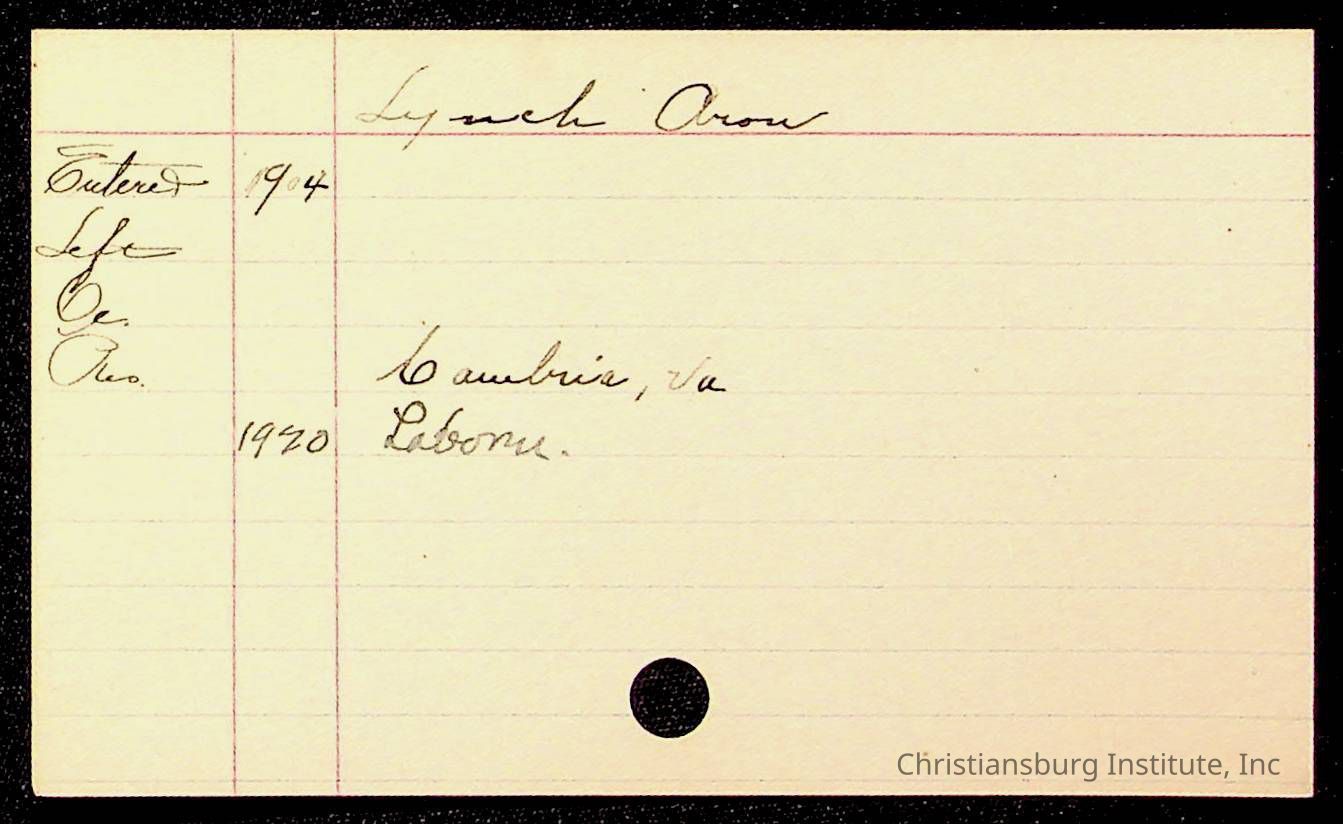 Lynch Aron
Entered 1904
Left
Oc.
Res. Cambria, Va
1920 Laborer.
Christiansburg Institute, Inc